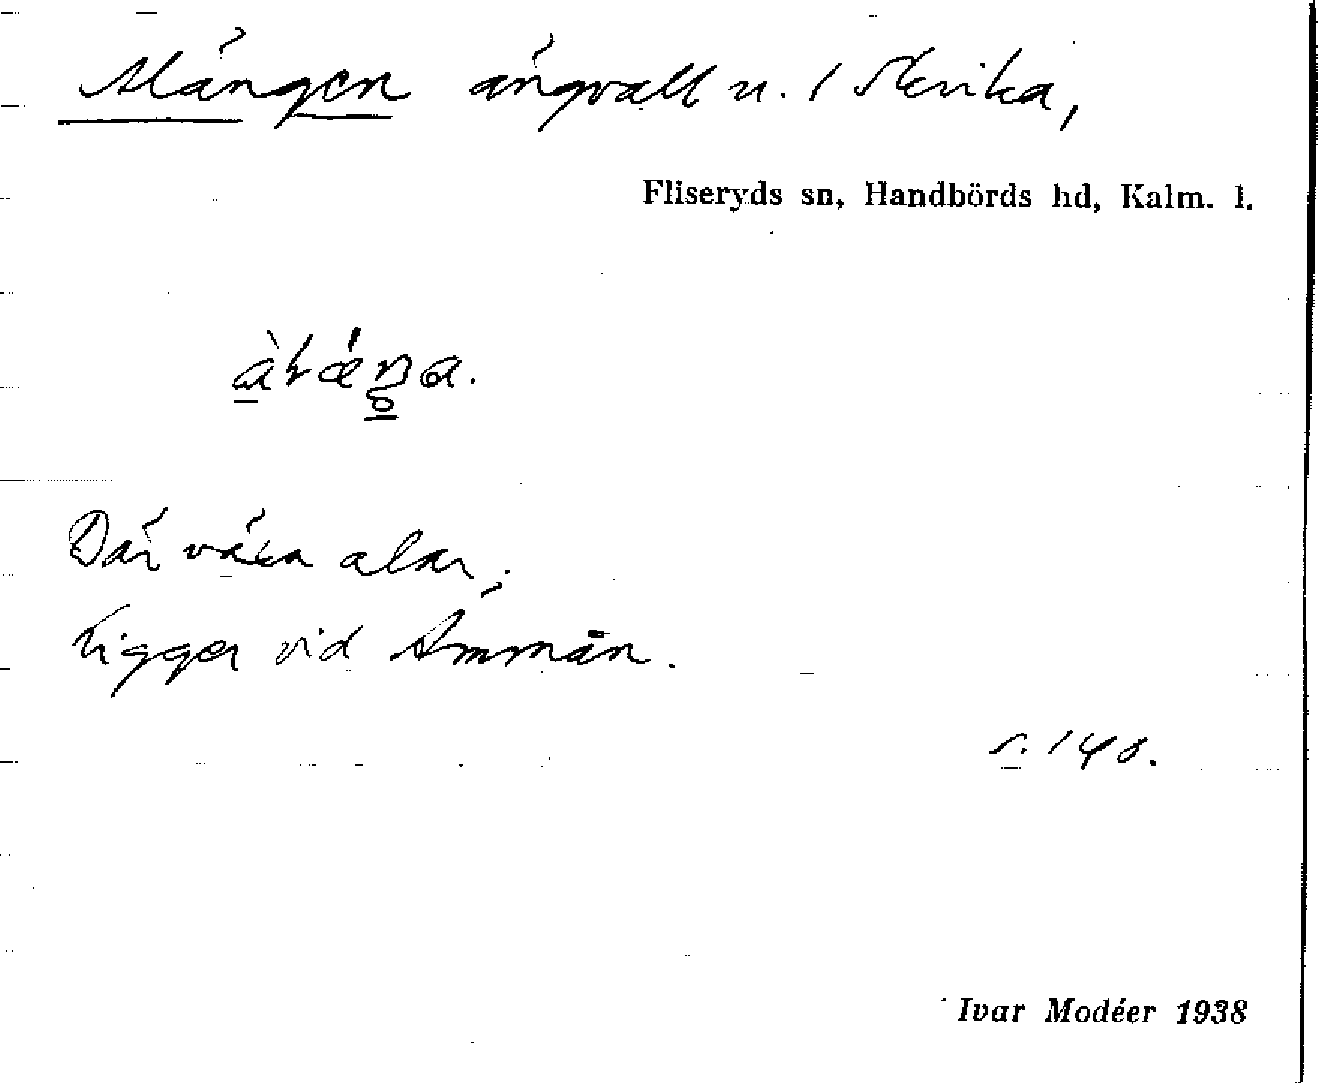 Alängen ängvall u. / Skvika,
Fliseryds sn, Handbörds hd, Kalm. l.
Där växa alar;
ligger vid Ämmån.
s. 140.
Ivar Modéer 1938